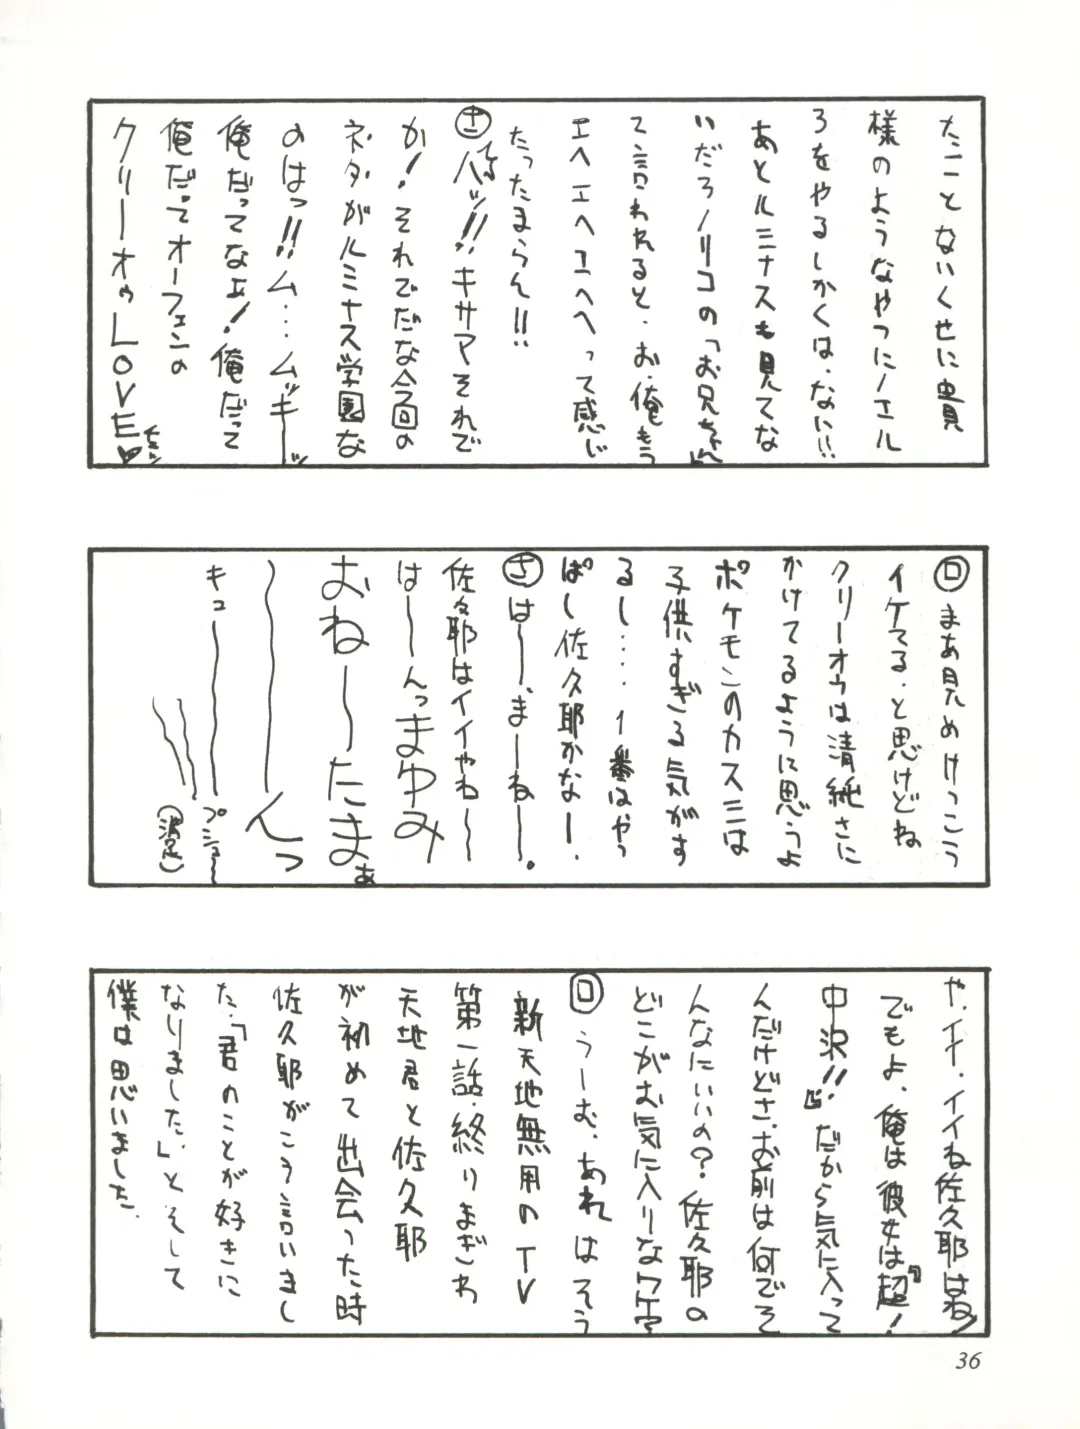 たことないくせに貴
様のようなやつにノエル
ろをやるしかくは、なに!!
あとルミナスも見てな
いだろノリコの「お兄ちゃん」
て言われると、お、俺もう
エヘエヘエヘヘって感じ
たったまらん!!
キサマそれで
か!それでだな今回の
ネタがルミナス学園な
のはっ!!ム…ムッキーッ
俺だってなぁ!俺だって
俺だってオーフェンの
クリーオゥLOVE♥
ロ まあ見ためけっこう
イケてる、と思けどね
クリーオウは清純さに
かけてるように思うよ
ポケモンのカスミは
子供すぎる気がす
るし……1番はやっ
ぱし佐久耶かなー、
さ は〜、まーねー。
佐久耶はイイやね〜
は〜んっまゆみ
おね〜たまぁ
〜んっ
キュー
プシュー
や、イイ、イイね佐久耶はね!
でもよ、俺は彼女は超!
中沢!!だから気に入って
んだけどさ、お前は何でそ
んなにいいの?佐久耶の
どこがお気に入りなワケ?
ロ うーむ、あれはそう
新天地無用のTV
第一話、終りまぎわ
天地君と佐久耶
が初めて出会った時
佐久耶がこう言いまし
た、「君のことが好きに
なりました」とそして
僕は思いました。
36